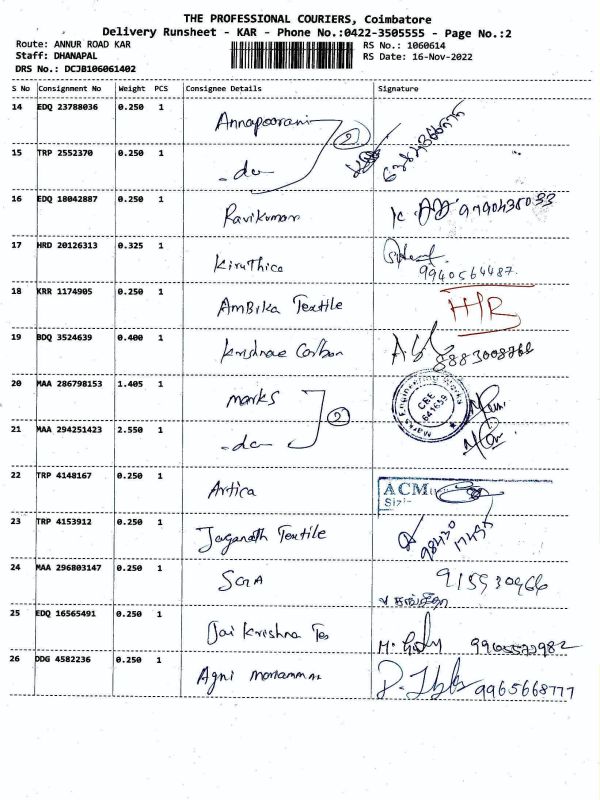 THE PROFESSIONAL COURIERS, Coimbatore
Delivery Runsheet - KAR - Phone No.:0422-3505555 - Page No.:2
Route: ANNUR ROAD KAR RS No.: 1060614
Staff: DHANAPAL RS Date: 16-Nov-2022
DRS No.: DCJB106061402
S No Consignment No Weight PCS Consignee Details Signature
14 EDQ 23788036 0.250 1 Annapoorani 2
15 TRP 2552370 0.250 1 -do-
16 EDQ 18042887 0.250 1 Ravikumar
17 HRD 20126313 0.325 1 Kiruthica
9940564487.
18 KRR 1174905 0.250 1 AmBika Textile
19 BDQ 3524639 0.400 1 Krishnae Carbon
20 MAA 286798153 1.405 1 marks 2 Marks Engineering Works CBE 641659
21 MAA 294251423 2.550 1 -do-
22 TRP 4148167 0.250 1 Artica ACM
23 TRP 4153912 0.250 1 Jaganath Textile
24 MAA 296803147 0.250 1 SGA 915930966
25 EDQ 16565491 0.250 1 Jai Krishna Tex M.
26 DDG 4582236 0.250 1 Agni mariamman 9965668777